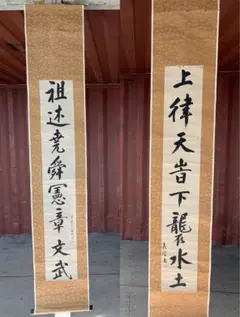 祖述堯舜憲章文武
上律天峕下襲水土